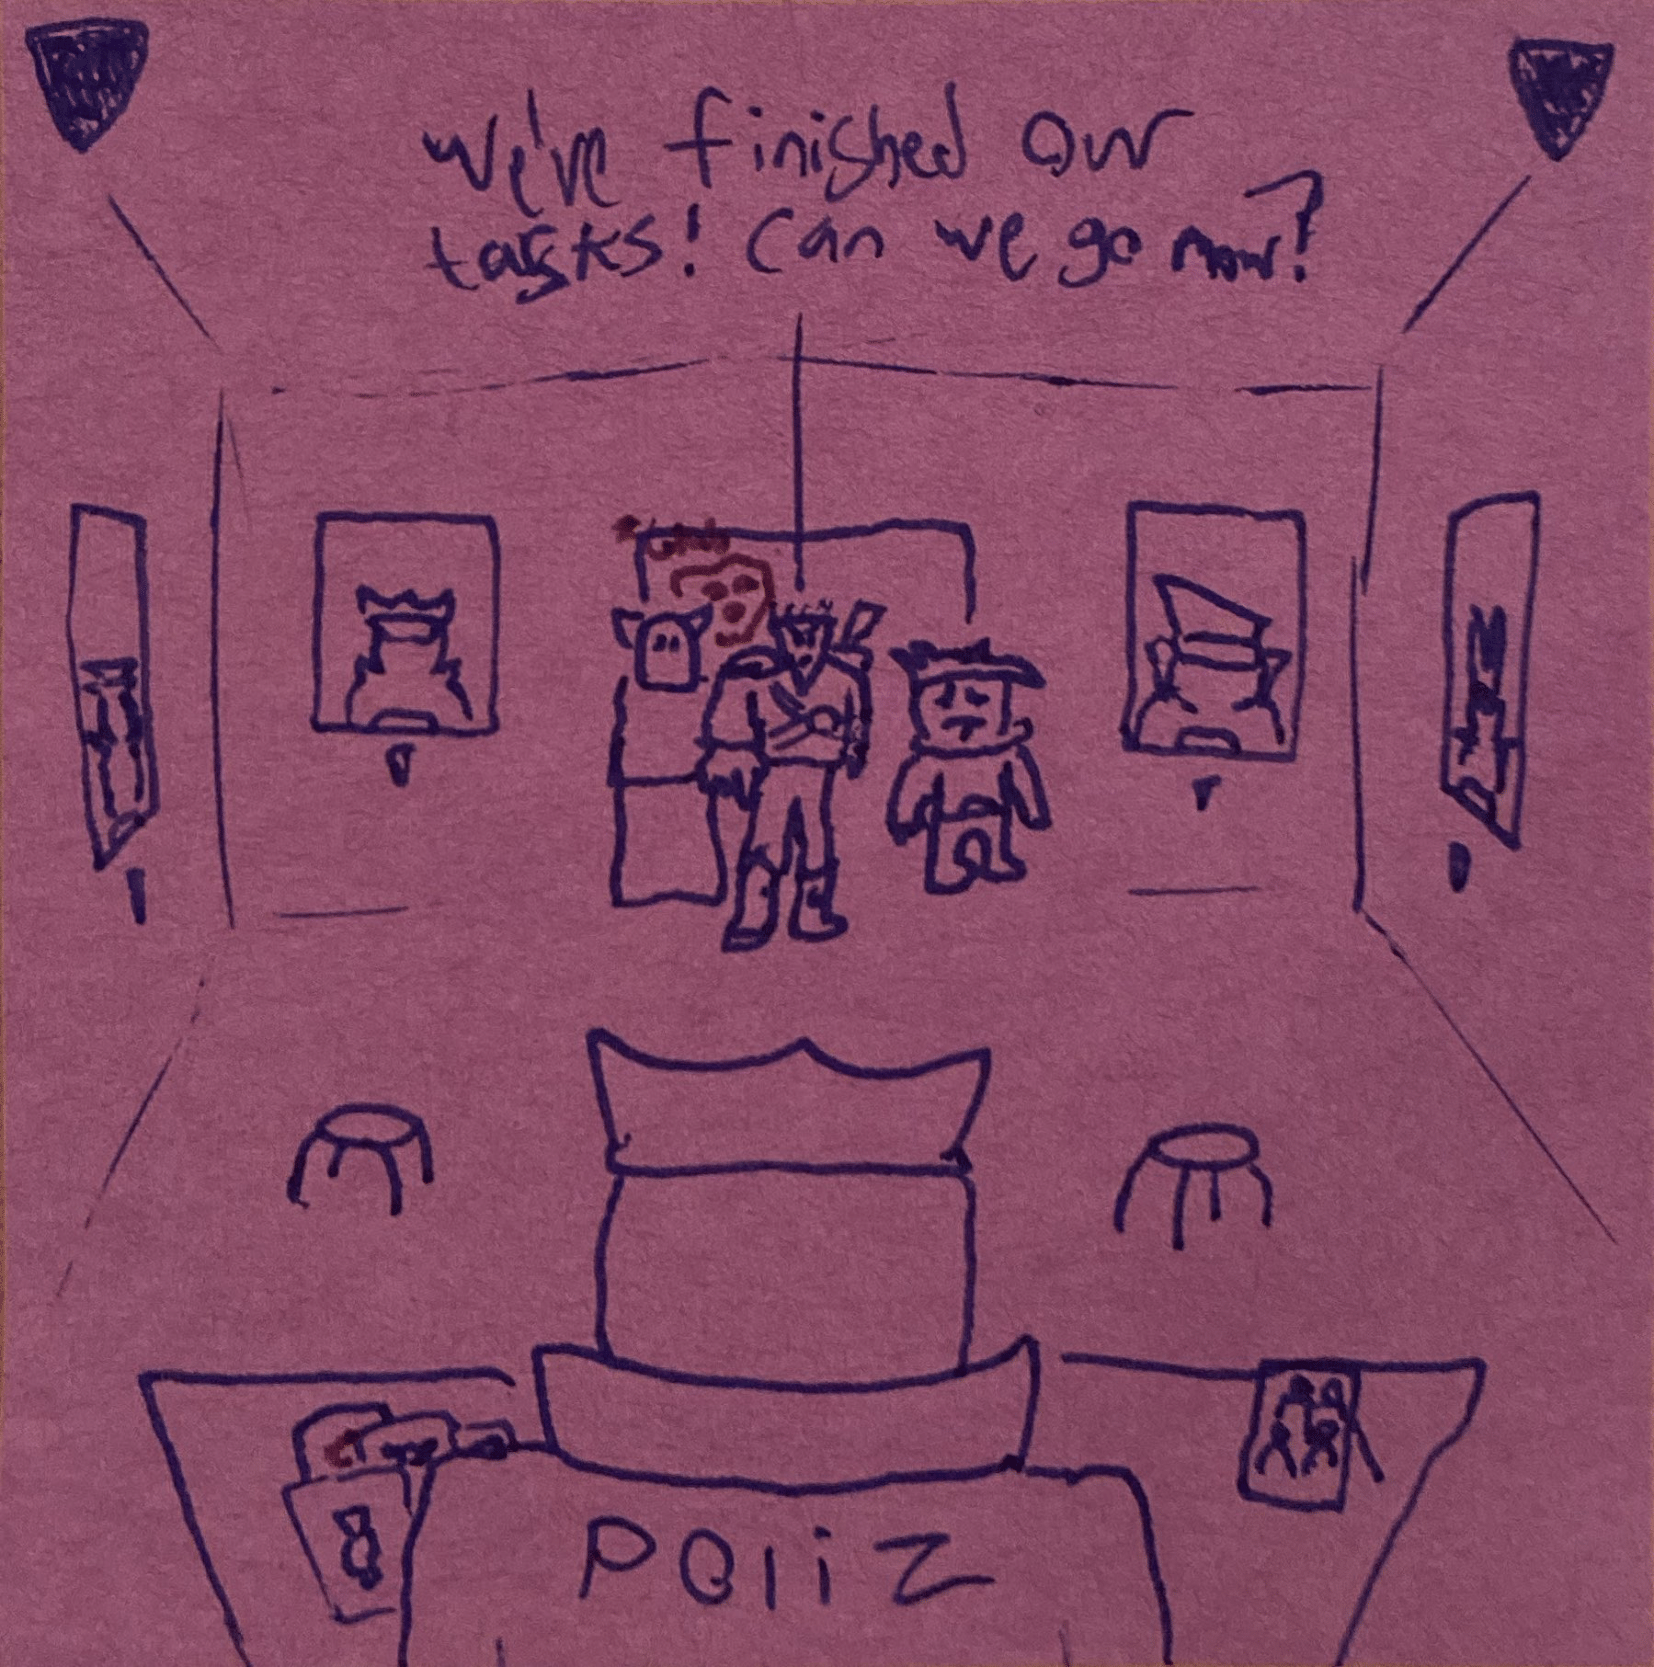 We've finished our
tasks! Can we go now?
PoliZ